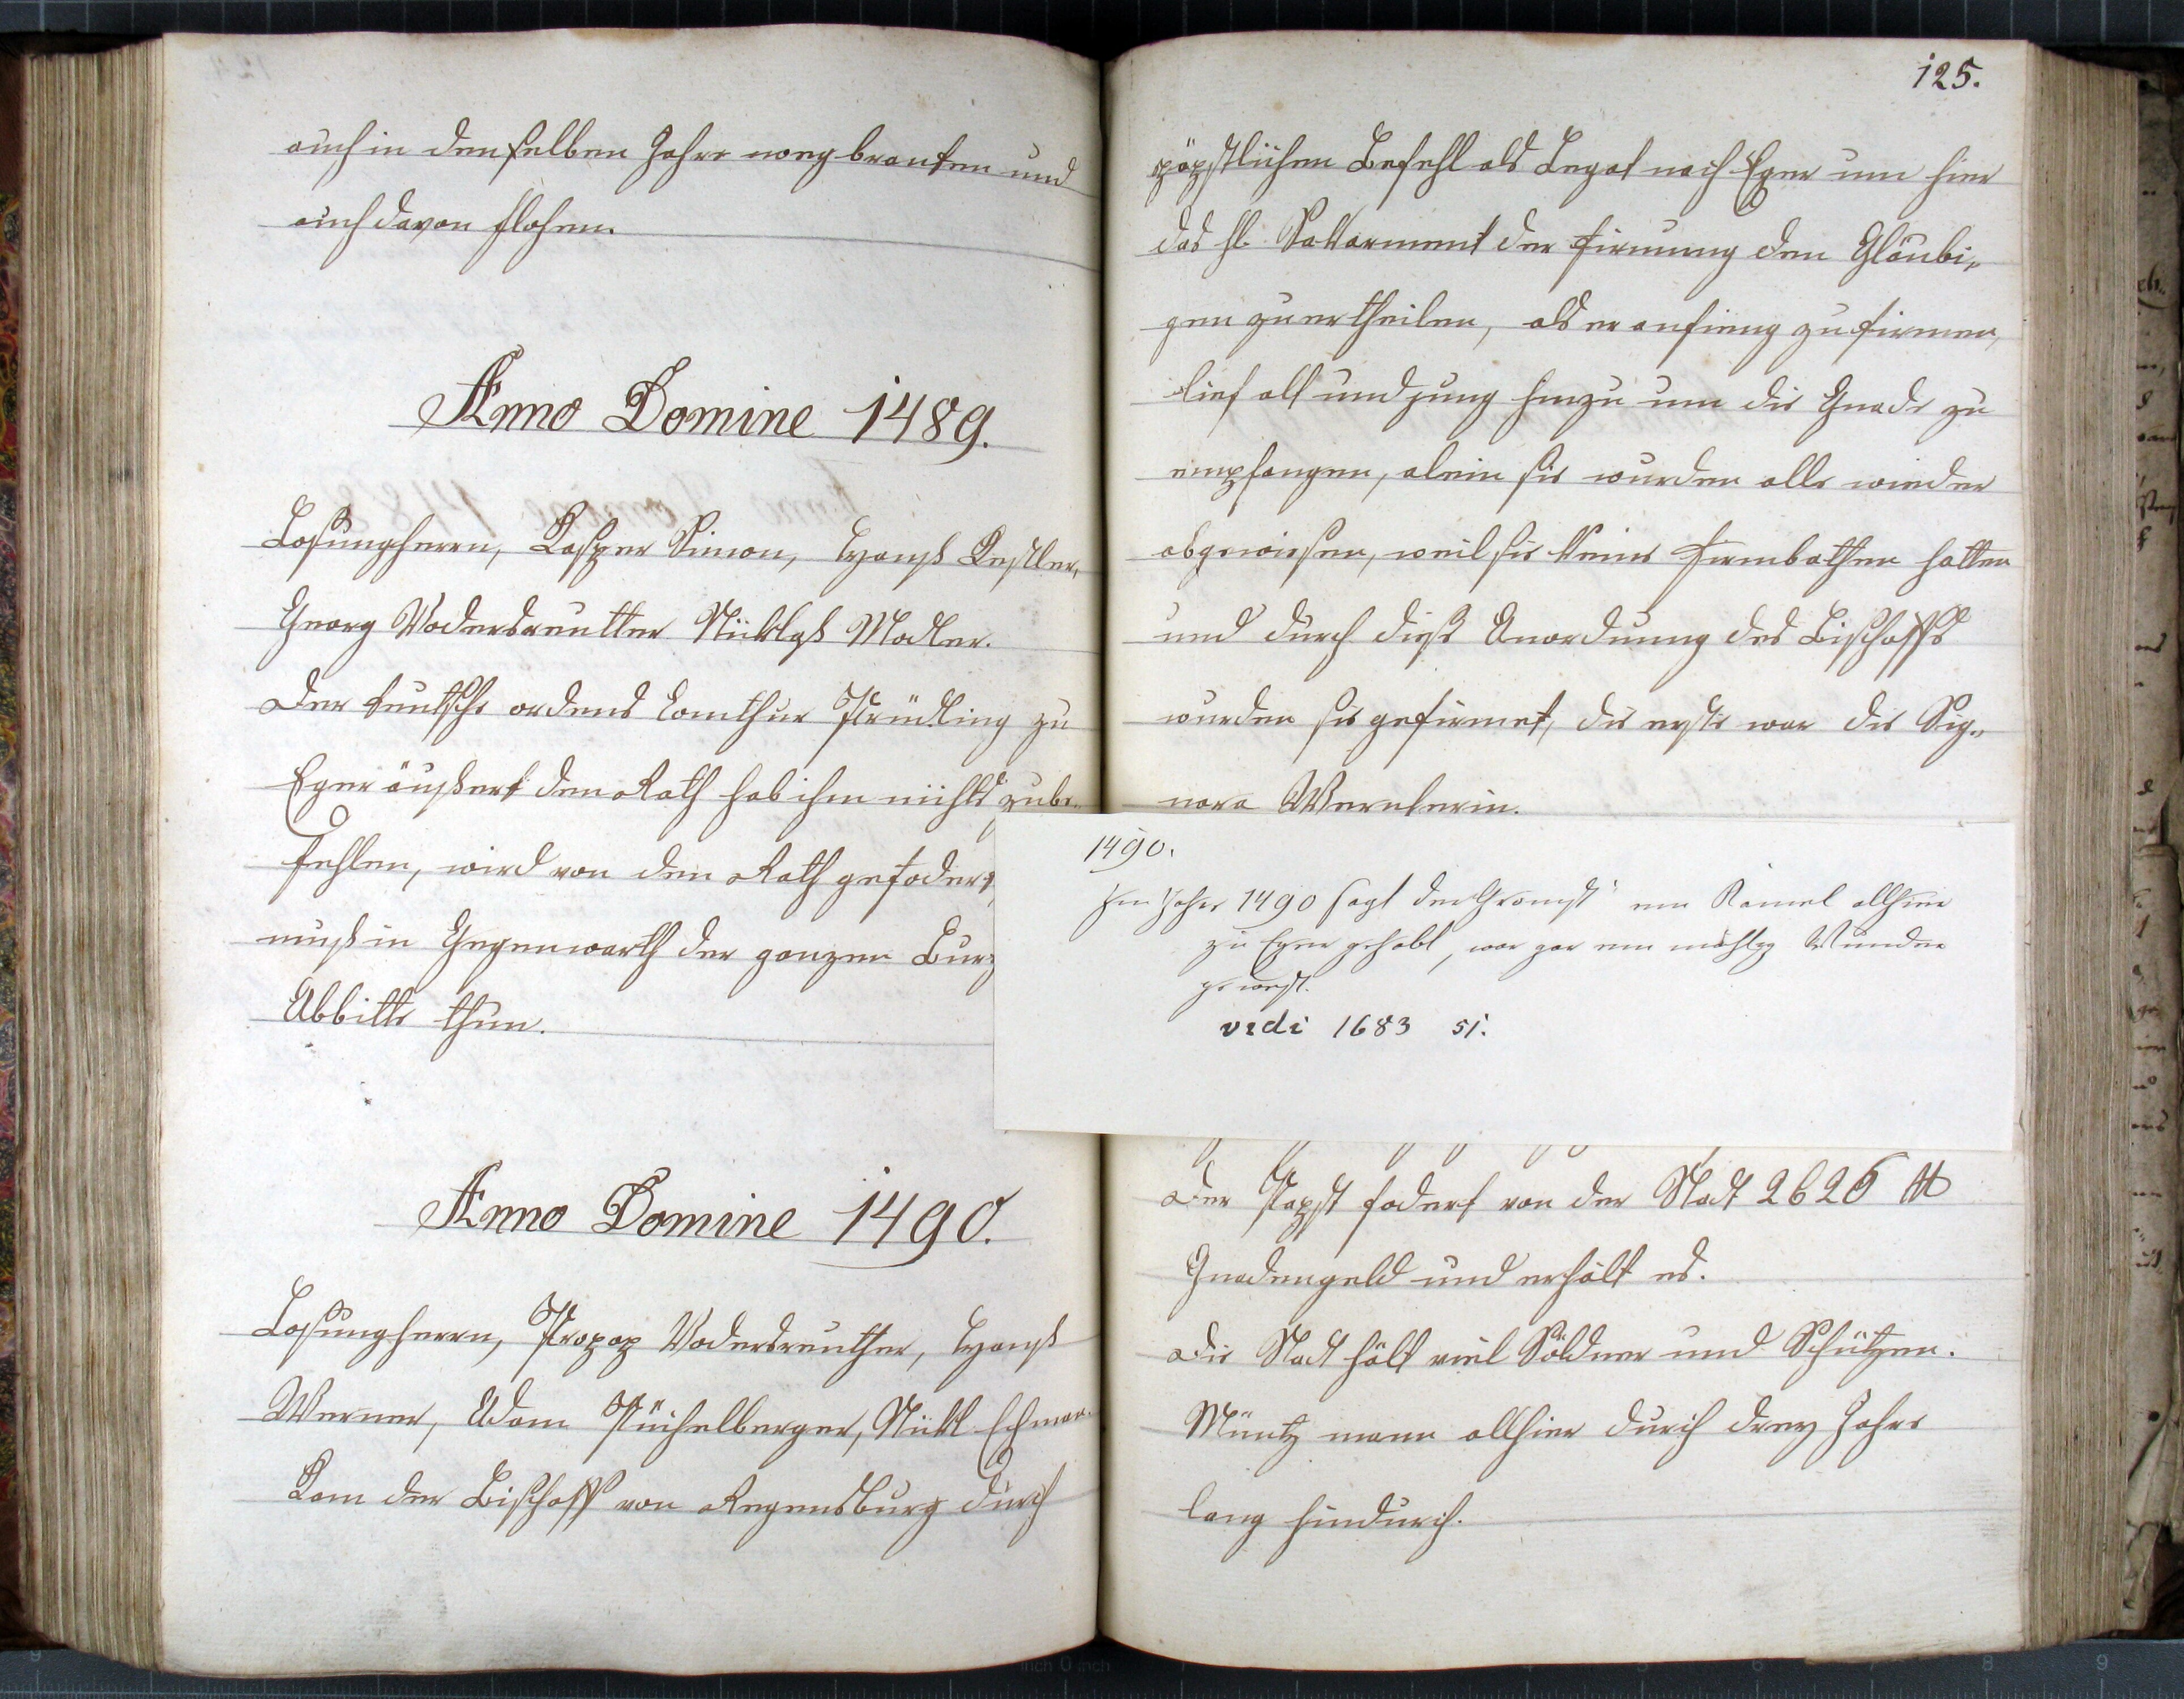 auch in denselben Jahre weg branten und
auch davon flohen.
Anno Domine 1489.
Losungherrn, Casper Simon, Hanß Cestler,
Georg Vodersreutter Niklaß Modler.
Der teutsche ordens Comthur Strüdling zu
Eger äußert dem Rath hab ihm nichts zube
fehlen, wird von dem Rath gefodert,
muß in Gegenwarth der ganzen Burg
Abbitte thun.
Anno Domine 1490.
Losungherrn, Propop Vodersreuther, Hanß
Werner, Adam Püchelberger, Nikl
Kam der Bischoff von Regensburg durch
125.
päpstlichen Befehl als Legat nach Eger um hier
das hl. Sakarment der Firmung den Gläubi„
gen zu ertheilen, als er anfieng zu firmen,
lief alt und jung hinzu um die Gnade zu
empfangen, alein sie wurden alle wieder
abgewiesen, weil sie keine Firmbathen hatten
und durch diese Anordnung des Bischoffs
wurden sie gefirmet, die erste war die Sig„
nora Wernherin.
1490.
Im Jahr 1490 hagt der ein Kamel allhier
zu Eger gehabt, war gar ein mächtig Wunder
gewest.
vidi 1683 51.
Der Papst fodert von der Stadt 2626 ℔
Gnadengeld und erhält es.
Die Stadt hält viel Söldner und Schützen.
Müntz mann allhier durch drey Jahre
lang hindurch.